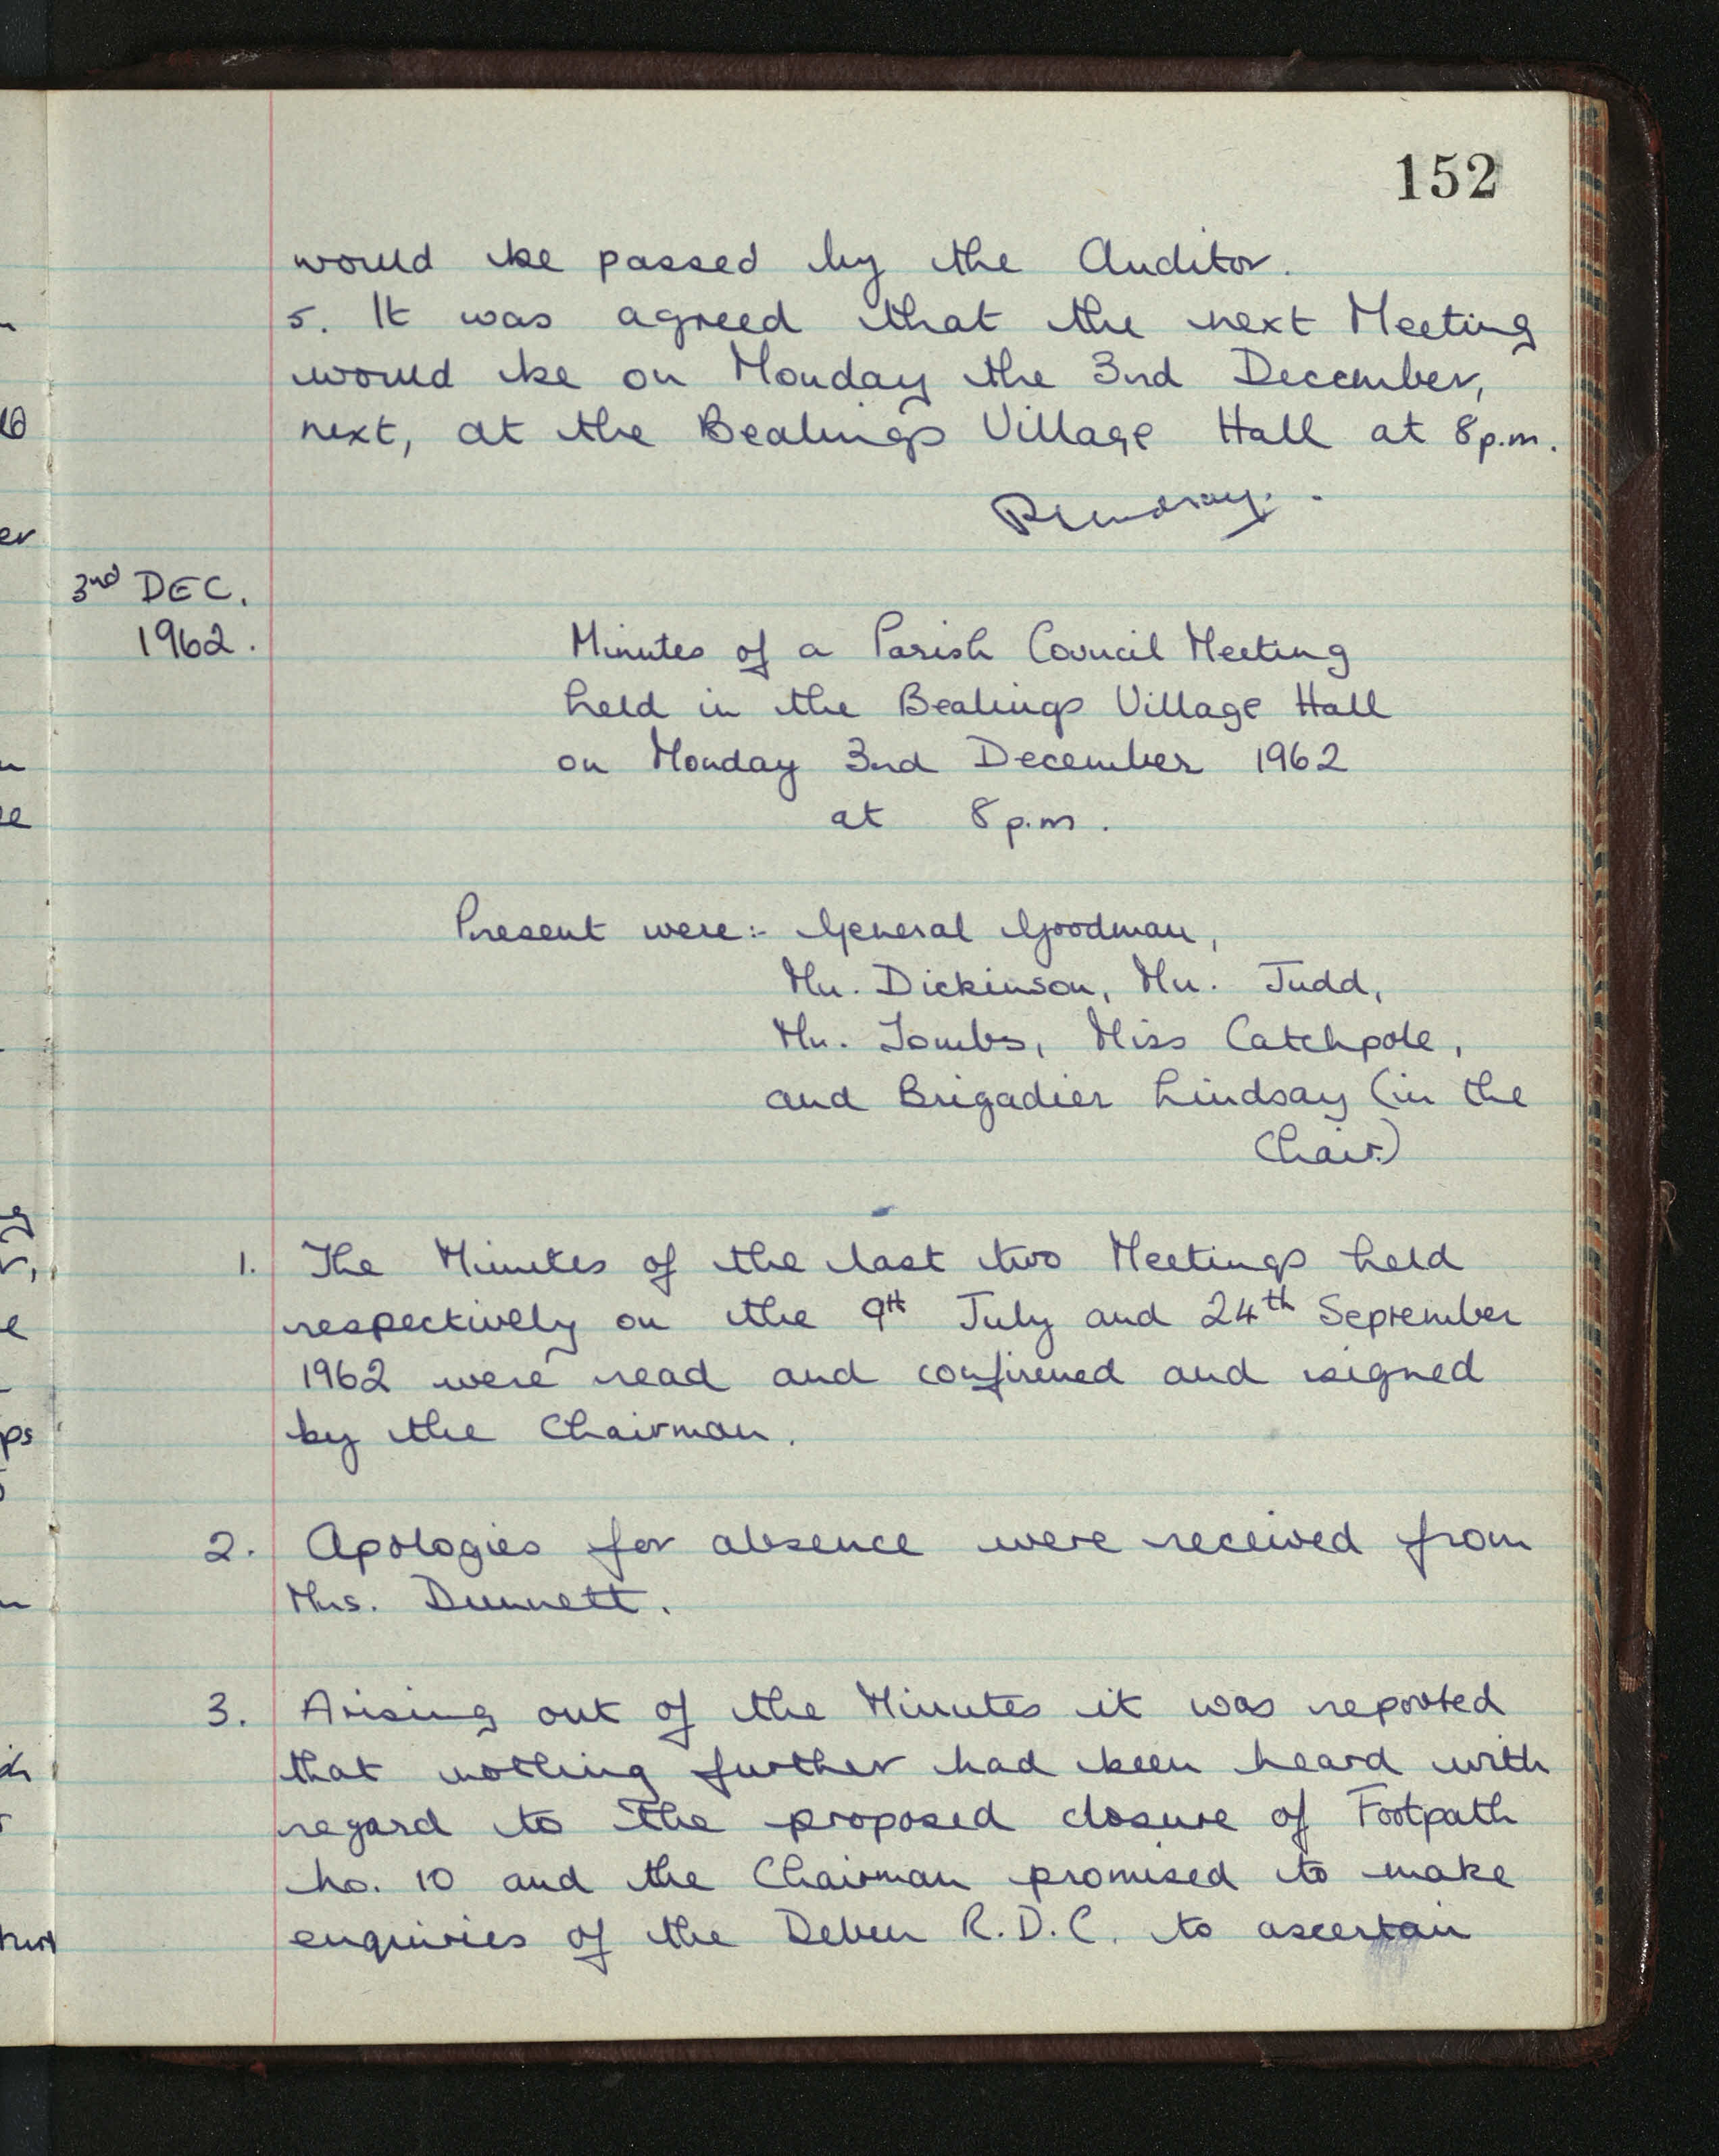 152
would be passed by the Auditor.
5. It was agreed that the next Meeting
would be on Monday the 3rd December,
next, at the Bealings Village Hall at 8 p.m.
3rd DEC.
1962.
Minutes of a Parish Council Meeting
held in the Bealings Village Hall
on Monday 3rd December 1962
at 8 p.m.
Present were:- General Goodman,
Mr. Dickinson, Mr. Judd,
Mr. Tombs, Miss Catchpole,
and Brigadier Lindsay (in the
Chair)
1. The Minutes of the last two Meetings held
respectively on the 9th July and 24th September
1962 were read and confirmed and signed
by the Chairman.
2. Apologies for absence were received from
Mrs. Dunnett.
3. Arising out of the Minutes it was reported
that nothing further had been heard with
regard to the proposed closure of Footpath
No. 10 and the Chairman promised to make
enquiries of the Deben R.D.C. to ascertain